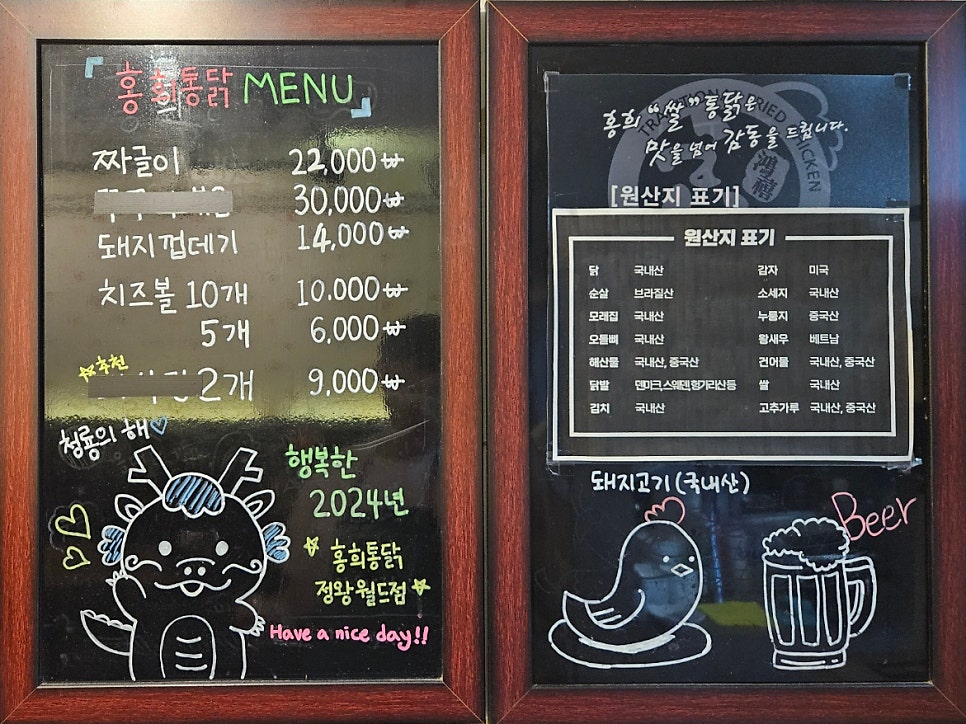 홍희통닭 MENU
짜글이 22,000₩
30,000₩
돼지껍데기 14,000₩
치즈볼 10개 10,000₩
5개 6,000₩
추천
2개 9,000₩
청룡의 해
행복한
2024년
홍희통닭
정왕월드점
Have a nice day!!
홍희 "쌀" 통닭은
맛을 넘어 감동을 드립니다.
鴻禧
[원산지 표기]
원산지 표기
닭 국내산 감자 미국
순살 브라질산 소세지 국내산
모래집 국내산 누룽지 중국산
오돌뼈 국내산 왕새우 베트남
해산물 국내산, 중국산 건어물 국내산, 중국산
닭발 덴마크,스웨덴,헝가리산 등 쌀 국내산
김치 국내산 고추가루 국내산, 중국산
돼지고기 (국내산)
Beer